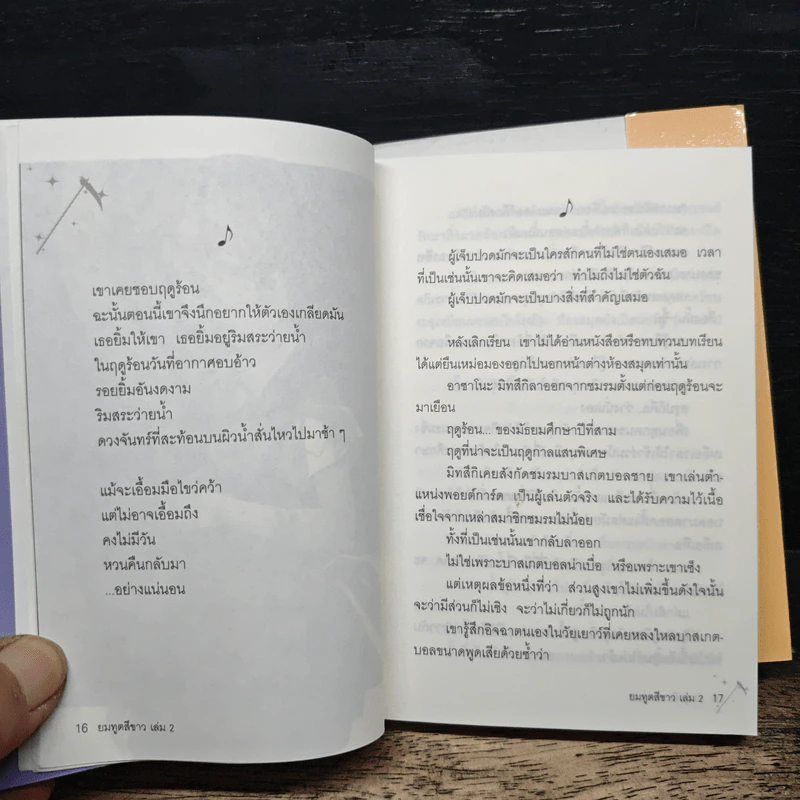 เขาเคยชอบฤดูร้อน
ฉะนั้นตอนนี้เขาจึงนึกอยากให้ตัวเองเกลียดมัน
เธอยิ้มให้เขา เธอยิ้มอยู่ริมสระว่ายน้ำ
ในฤดูร้อนวันที่อากาศอบอ้าว
รอยยิ้มอันงดงาม
ริมสระว่ายน้ำ
ดวงจันทร์ที่สะท้อนบนผิวน้ำสั่นไหวไปมาช้า ๆ
แม้จะเอื้อมมือไขว่คว้า
แต่ไม่อาจเอื้อมถึง
คงไม่มีวัน
หวนคืนกลับมา
...อย่างแน่นอน
16 ยมทูตสีขาว เล่ม 2
ผู้เจ็บปวดมักจะเป็นใครสักคนที่ไม่ใช่ตนเองเสมอ เวลา
ที่เป็นเช่นนั้นเขาจะคิดเสมอว่า ทำไมถึงไม่ใช่ตัวฉัน
ผู้เจ็บปวดมักจะเป็นบางสิ่งที่สำคัญเสมอ
หลังเลิกเรียน เขาไม่ได้อ่านหนังสือหรือทบทวนบทเรียน
ได้แต่ยืนเหม่อมองออกไปนอกหน้าต่างห้องสมุดเท่านั้น
อาซาโนะ มิทสึกิลาออกจากชมรมตั้งแต่ก่อนฤดูร้อนจะ
มาเยือน
ฤดูร้อน... ของมัธยมศึกษาปีที่สาม
ฤดูที่น่าจะเป็นฤดูกาลแสนพิเศษ
มิทสึกิเคยสังกัดชมรมบาสเกตบอลชาย เขาเล่นตำ-
แหน่งพอยต์การ์ด เป็นผู้เล่นตัวจริง และได้รับความไว้เนื้อ
เชื่อใจจากเหล่าสมาชิกชมรมไม่น้อย
ทั้งที่เป็นเช่นนั้นเขากลับลาออก
ไม่ใช่เพราะบาสเกตบอลน่าเบื่อ หรือเพราะเขาเซ็ง
แต่เหตุผลข้อหนึ่งที่ว่า ส่วนสูงเขาไม่เพิ่มขึ้นดังใจนั้น
จะว่ามีส่วนก็ไม่เชิง จะว่าไม่เกี่ยวก็ไม่ถูกนัก
เขารู้สึกอิจฉาตนเองในวัยเยาว์ที่เคยหลงใหลบาสเกต-
บอลขนาดพูดเสียด้วยซ้ำว่า
ยมทูตสีขาว เล่ม 2 17